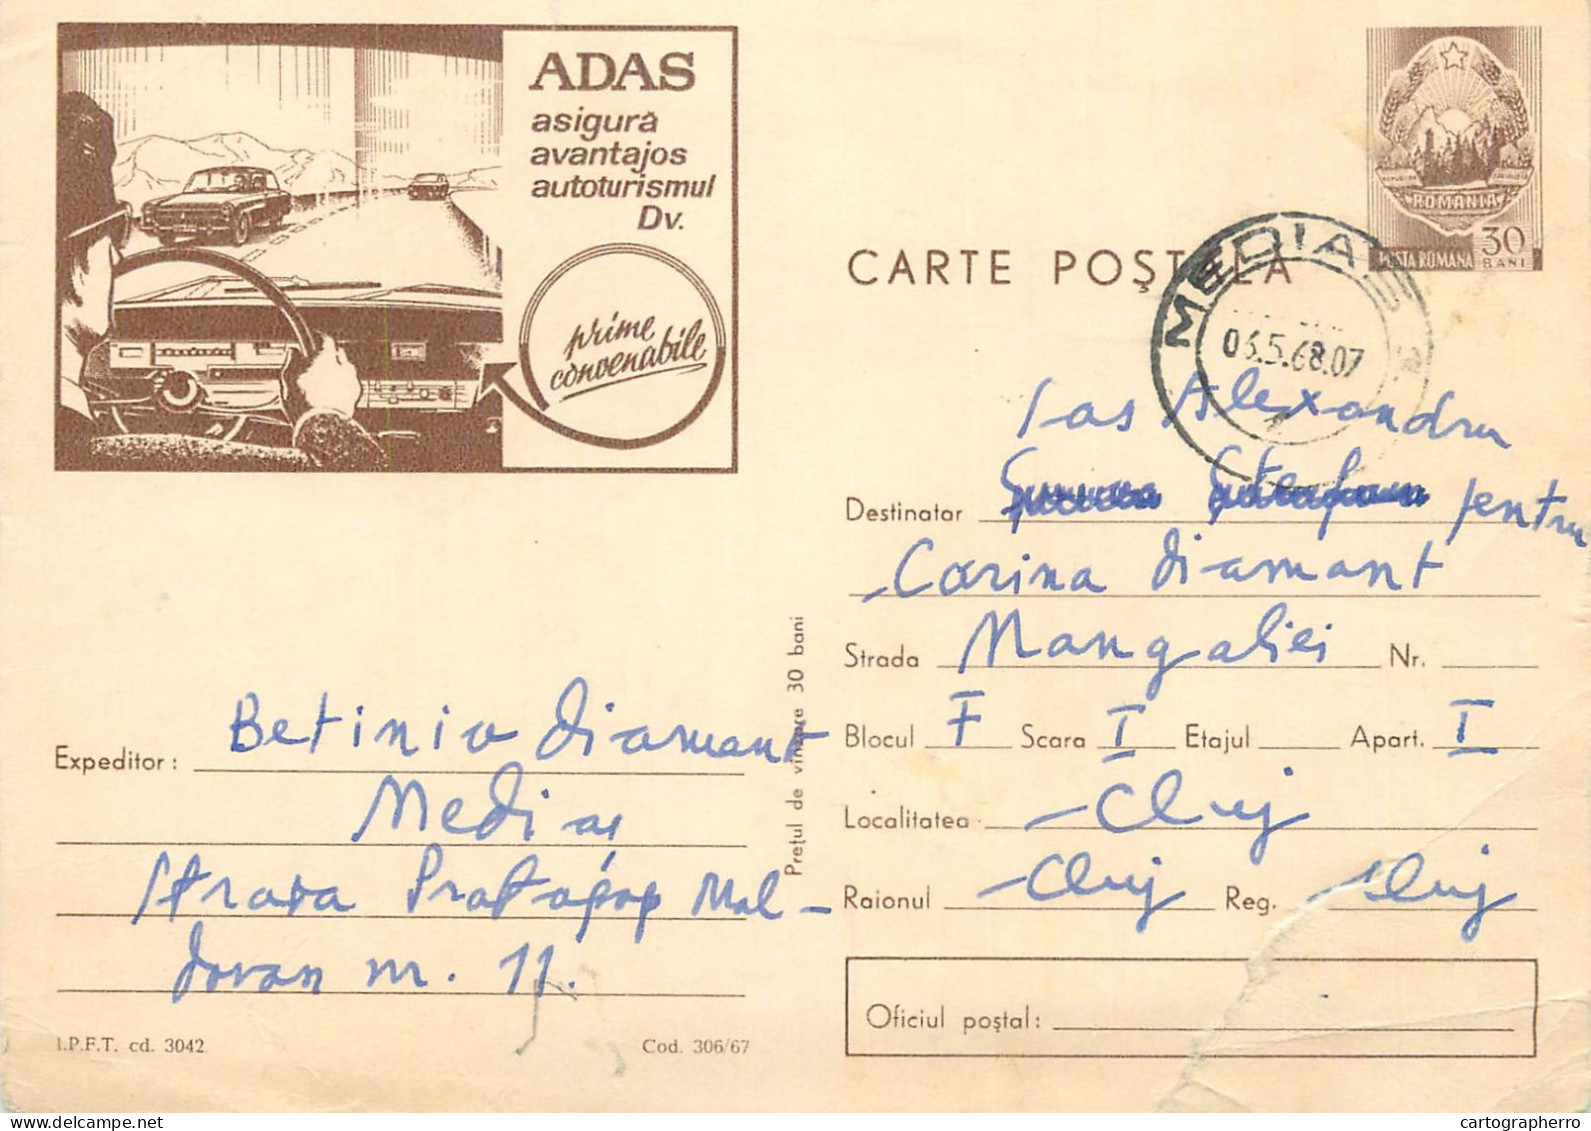 ADAS
asigură
avantajos
autoturismul
Dv.
prime
convenabile
ROMANIA
POSTA ROMANA
30
BANI
CARTE POȘTALĂ
MEDIAȘ
06.5.68.07
Alexandru
Destinatar pentru
Carina Diamant
Strada Mangaliei Nr.
Blocul F Scara I Etajul Apart. I
Localitatea Cluj
Raionul Cluj Reg. Cluj
Oficiul poștal:
Prețul de vînzare 30 bani
Expeditor: Betinia Diamant
Mediaș
Strada Protopop Mol-
dovan nr. 11.
I.P.F.T. cd. 3042
Cod. 306/67
cartographerro